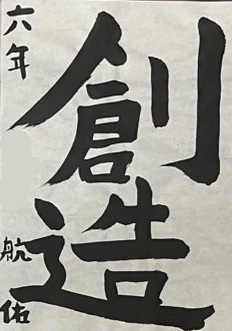 創造
六年
航佑